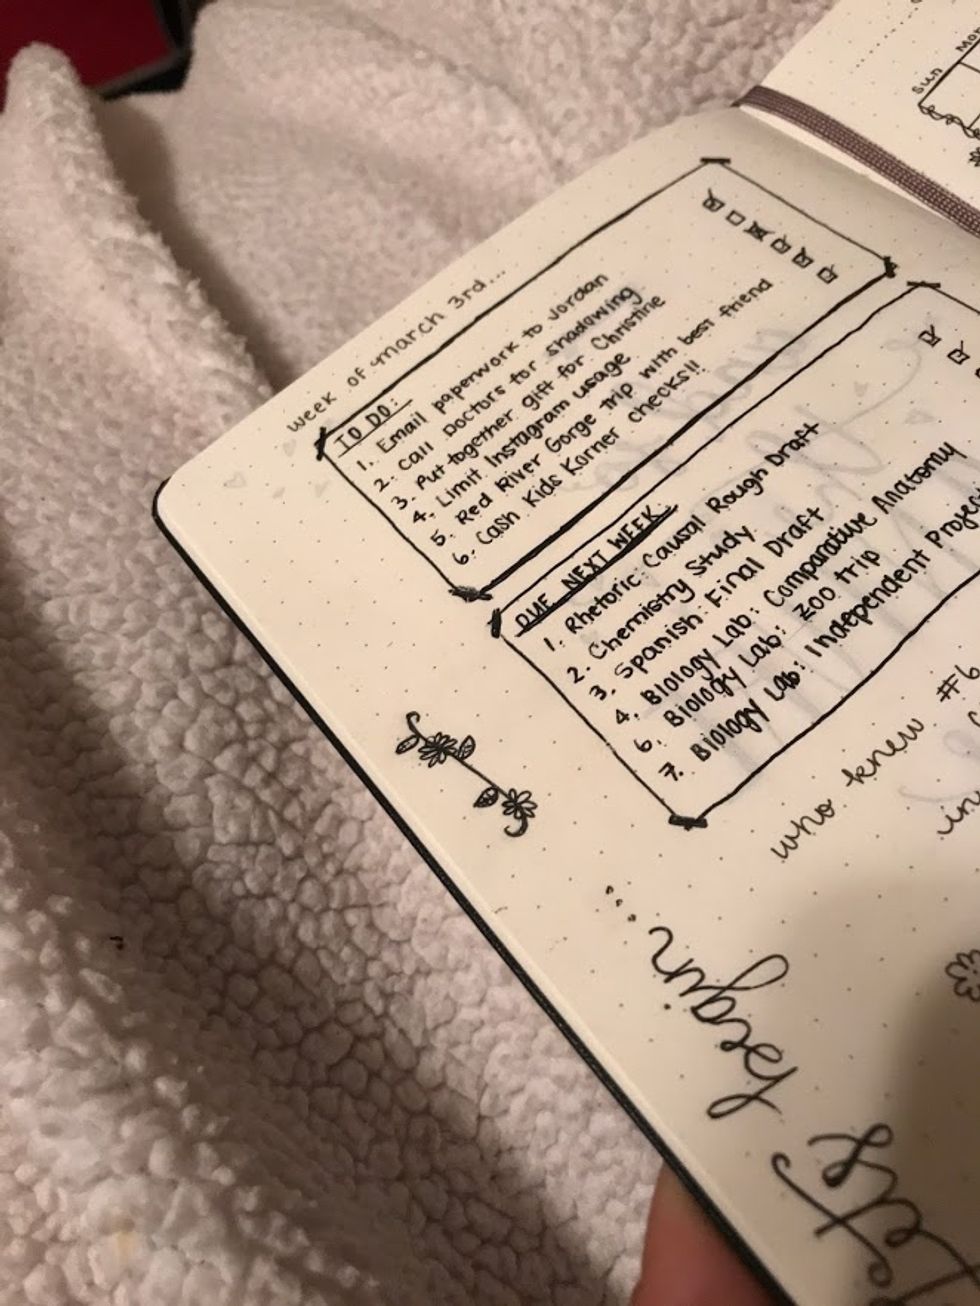 Sun Mon
week of march 3rd...
TO DO:
1. Email paperwork to Jordan
2. call Doctors for shadowing
3. Put together gift for Christine
4. Limit Instagram usage
5. Red River Gorge Trip with best friend
6. Cash Kids Korner checks!!
DUE NEXT WEEK:
1. Rhetoric: Causal Rough Draft
2. Chemistry Study
3. Spanish: Final Draft
4. Biology Lab: Comparative Anatomy
6. Biology Lab: zoo trip
7. Biology Lab: Independent Project
who knew #6
Lets
begin...